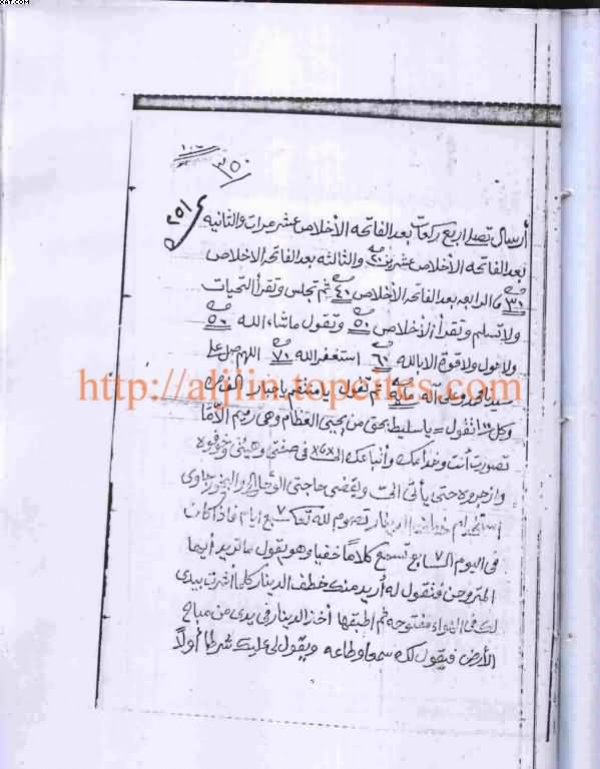 XAT.COM
١٠٦
٣٥٠
٢٥١
أرسال تصلى اربع ركعات بعد الفاتحه الأخلاص عشر مرات والثانيه
بعد الفاتحه الأخلاص عشرين ٢٠ والثالثه بعد الفاتحه الاخلاص
٣٠ والرابعه بعد الفاتحه الأخلاص ٤٠ ثم تجلس وتقرأ التحيات
ولا تسلم وتقرأ الأخلاص ٥٠ وتقول ماشاء الله ٥٠
ولا حول ولا قوة الا بالله ٦٠ استغفر الله ٧٠ اللهم صل على
سيدنا محمد وعلى آله ثم تقول يا منتقم يا جبار
http://aljjin.topcities.com
وكل تقول = يا سليط بحق من يحيى العظام وهى رميم الا ما
تصورت أنت وخدامك وأتباعك الى في صفتي وهيئتي
وازجروه حتى يأتى الى ويقضى حاجتى والبخور جاوى
استخدام خطف الدينار تصوم لله تعالى ٧ أيام فاذا كان
فى اليوم ال٧ تسمع كلاما خفيا وهو يقول ما تريد أيها
فتقول له أريد منك خطف الدينار كلما أشرت بيدى
لك فى الهواء مفتوحه ثم اطبقها أخذ الدينار فى يدى من مباح
الأرض فيقول لك سمعا وطاعه ويقول لى عليك شرطا أولاً